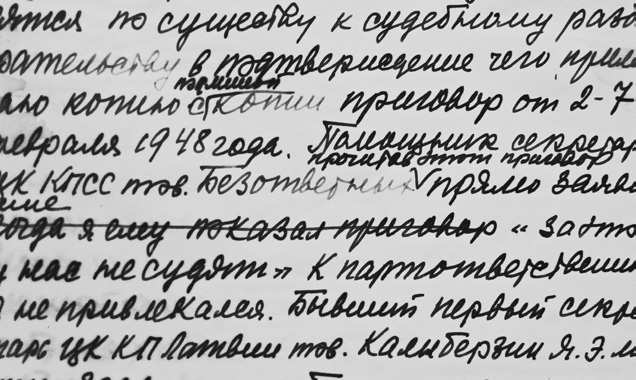 ятся по существу к судебному разб
рательству в подтверждение чего прила
гаю копию с копии приговор от 2-7
февраля 1948 года. Помощник секретар
прочитав этот приговор
ЦК КПСС тов. Безответных прямо заяв
когда я ему показал приговор « за это
у нас не судят» к партответственн
не привлекался. Бывший первый секре
тарь ЦК КП Латвии тов. Калнберзин Я. Э.